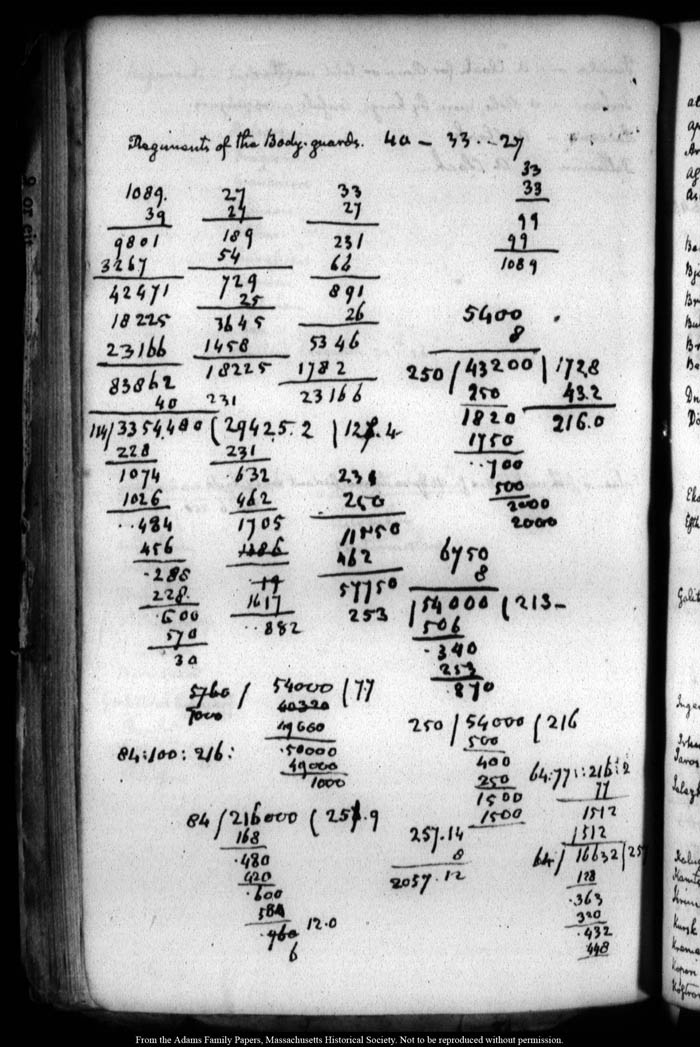 Regiments of the Body-guards. 40 - 33 .. 27
1089.
39
9801
3267
42471
18225
23166
83862
40
114/3354,480 (29425.2 | 127.4
228
1074
1026
..484
456
.288
228.
.600
570
30
27
27
189
54
729
25
3645
1458
18225
231
231
632
462
1705
1617
..882
33
27
231
66
891
26
5346
1782
23166
231
250
11550
462
57750
253
33
33
99
99
1089
5400
8
250 / 43200 | 1728
250
43.2
1820
216.0
1750
..700
500
2000
2000
6750
8
/54000 (213-
506
.340
253
.870
5760 / 54000 (77
7000
40320
49660
.50000
49000
1000
84:100:216:
250 / 54000 (216
500
400
250
1500
1500
84 / 216000 (257.9
168
.480
420
.600
588
12.0
6
257.14
8
2057.12
64:77::216:2
77
1512
1512
64/ 16632 (257
128
.363
320
.432
448
From the Adams Family Papers, Massachusetts Historical Society. Not to be reproduced without permission.